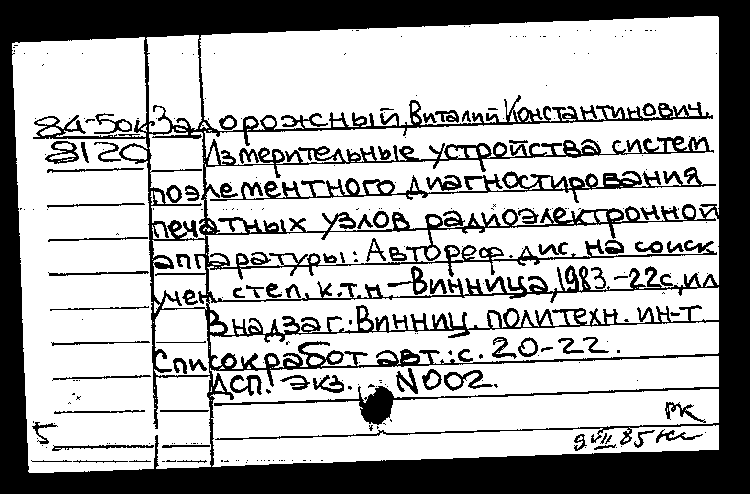 84-5ок Задорожный, Виталий Константинович.
8120 Измерительные устройства систем
поэлементного диагностирования
печатных узлов радиоэлектронной
аппаратуры: Автореф. дис. на соиск
учен. степ. к.т.н.-Винница, 1983.-22с, ил
В надзаг.: Винниц. политехн. ин-т
Список работ авт.: с. 20-22.
ДСП. экз. N002.
РК
5
9 VII 85